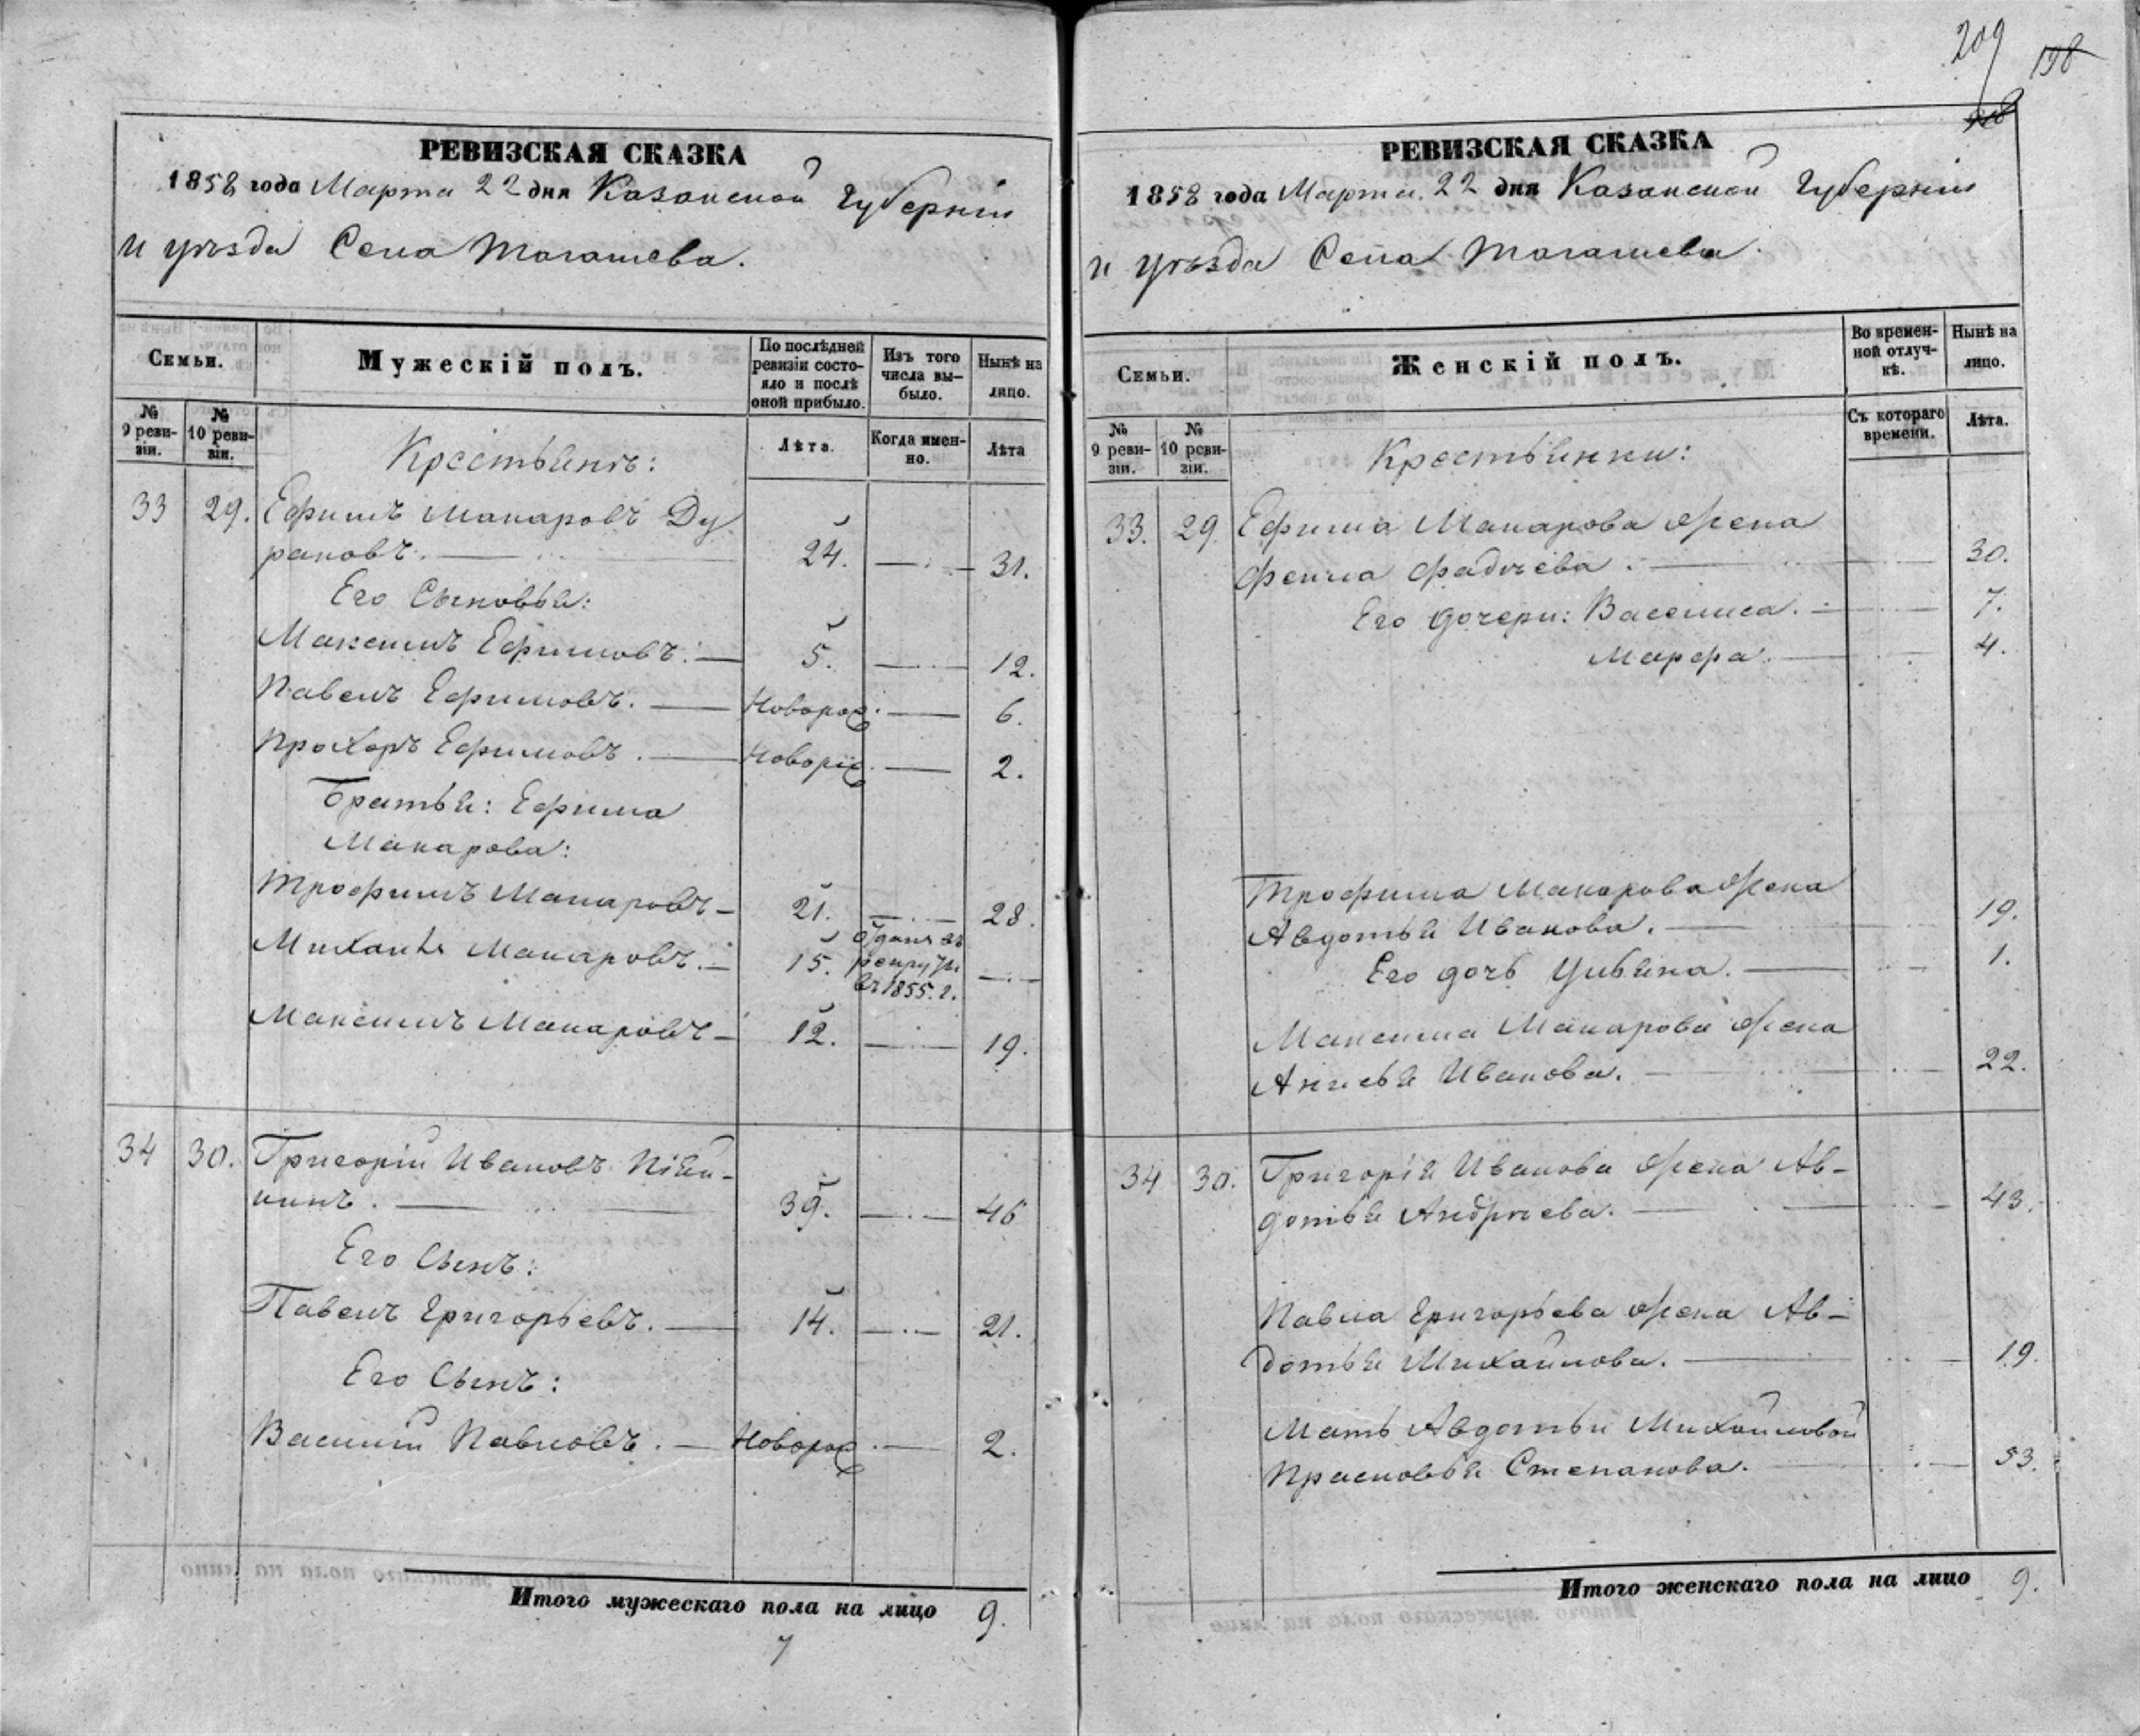 209 198
РЕВИЗСКАЯ СКАЗКА
1858 года Марта 22 дня Казанской Губерніи
и уѣзда Села Тагашева.
Семьи.
Мужескій полъ.
По послѣдней ревизіи состояло и послѣ оной прибыло.
Изъ того числа выбыло.
Нынѣ на лицо.
№ 9 ревизіи.
№ 10 ревизіи.
Лѣта.
Когда именно.
Лѣта
Крестьянъ:
33 29. Ефимъ Макаровъ Ду
раковъ. 24. 31.
Его Сыновья:
Максимъ Ефимовъ. 5. 12.
Павелъ Ефимовъ. Новорож. 6.
Прохоръ Ефимовъ. Новорож. 2.
Братья: Ефима
Макарова:
Трофимъ Макаровъ 21. 28.
Михаилъ Макаровъ. 15. Отданъ въ
рекруты
въ 1855. г.
Максимъ Макаровъ 12. 19.
34 30. Григорій Ивановъ
кинъ. 39. 46
Его Сынъ:
Павелъ Григорьевъ. 14. 21.
Его Сынъ:
Василій Павловъ. Новорож. 2.
Итого мужескаго пола на лицо 9.
7
РЕВИЗСКАЯ СКАЗКА
1858 года Марта 22 дня Казанской Губерніи
и уѣзда Села Тагашева.
Семьи.
Женскій полъ.
Во временной отлучкѣ.
Нынѣ на лицо.
№ 9 ревизіи.
№ 10 ревизіи.
Съ котораго времени.
Лѣта.
Крестьянки:
33. 29. Ефима Макарова жена
Фекла Фадѣева. 30.
Его дочери: Василиса. 7.
Марфа. 4.
Трофима Макарова жена
Авдотья Иванова. 19.
Его дочь Ульяна. 1.
Максима Макарова жена
Анисья Иванова. 22.
34 30. Григорія Иванова жена Ав-
дотья Андрѣева. 43.
Павла Григорьева жена Ав-
дотья Михайлова. 19.
Мать Авдотьи Михайловой
Прасковья Степанова. 53.
Итого женскаго пола на лицо 9.